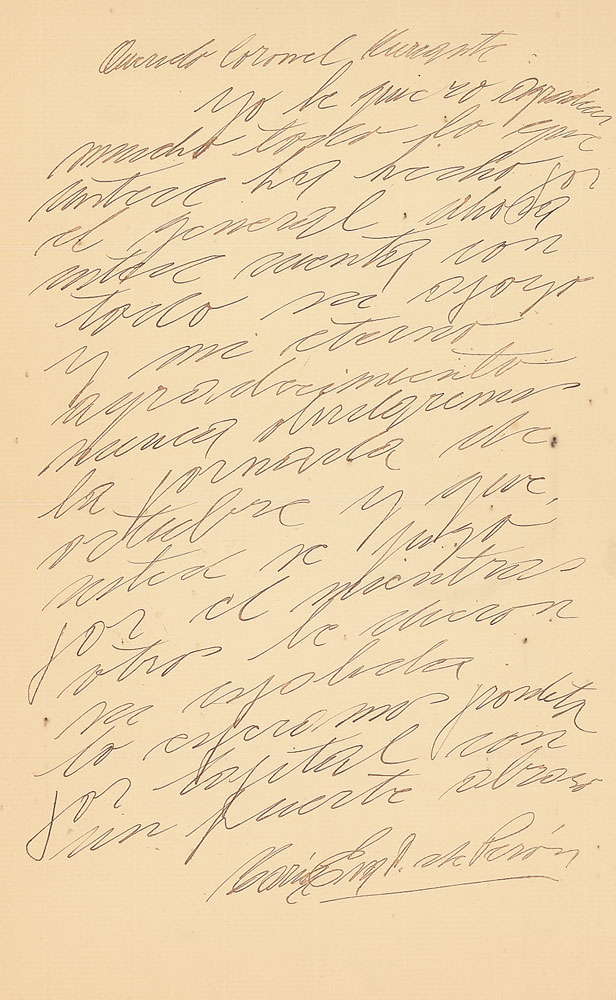 Querido Coronel
yo le quiero agradecer
mucho todo lo que
usted ha hecho por
el general ahora
usted cuenta con
todo mi apoyo
y mi eterno
agradecimiento
nunca olvidaremos
la jornada de
octubre y que
usted se jugo
por el mientras
otros le dieron
la espalda
lo esperamos pronto
por Capital con
un fuerte abraso
Maria Eva D. de Perón